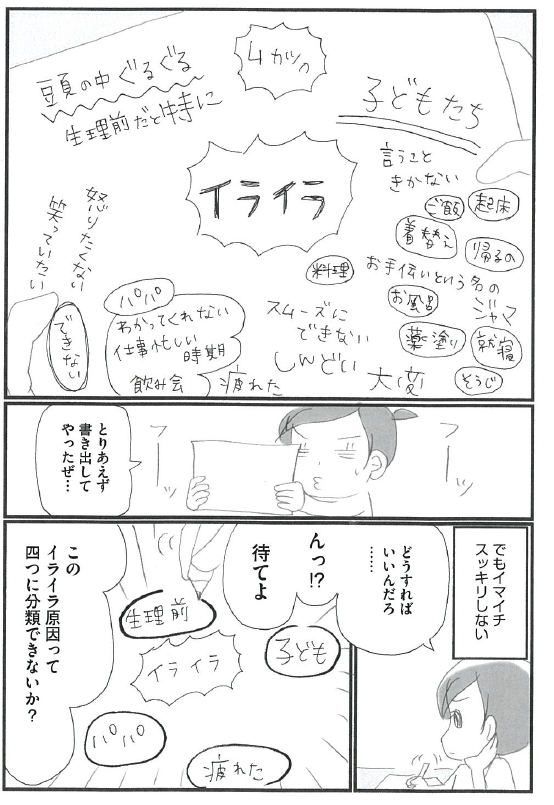 頭の中ぐるぐる
生理前だと特に
イライラ
子どもたち
言うこと
きかない
ご飯
起床
着替え
帰るの
料理
お手伝いという名の
ジャマ
お風呂
薬塗り
就寝
そうじ
スムーズに
できない
しんどい
大変
疲れた
パパ
わかってくれない
仕事忙しい
時期
飲み会
怒りたくない
笑っていたい
できない
フーッ
フーッ
とりあえず
書き出して
やったぜ…
でもイマイチ
スッキリしない
どうすれば
いいんだろ
……
んっ!?
待てよ
生理前
イライラ
子ども
パパ
疲れた
この
イライラ原因って
四つに分類できないか?